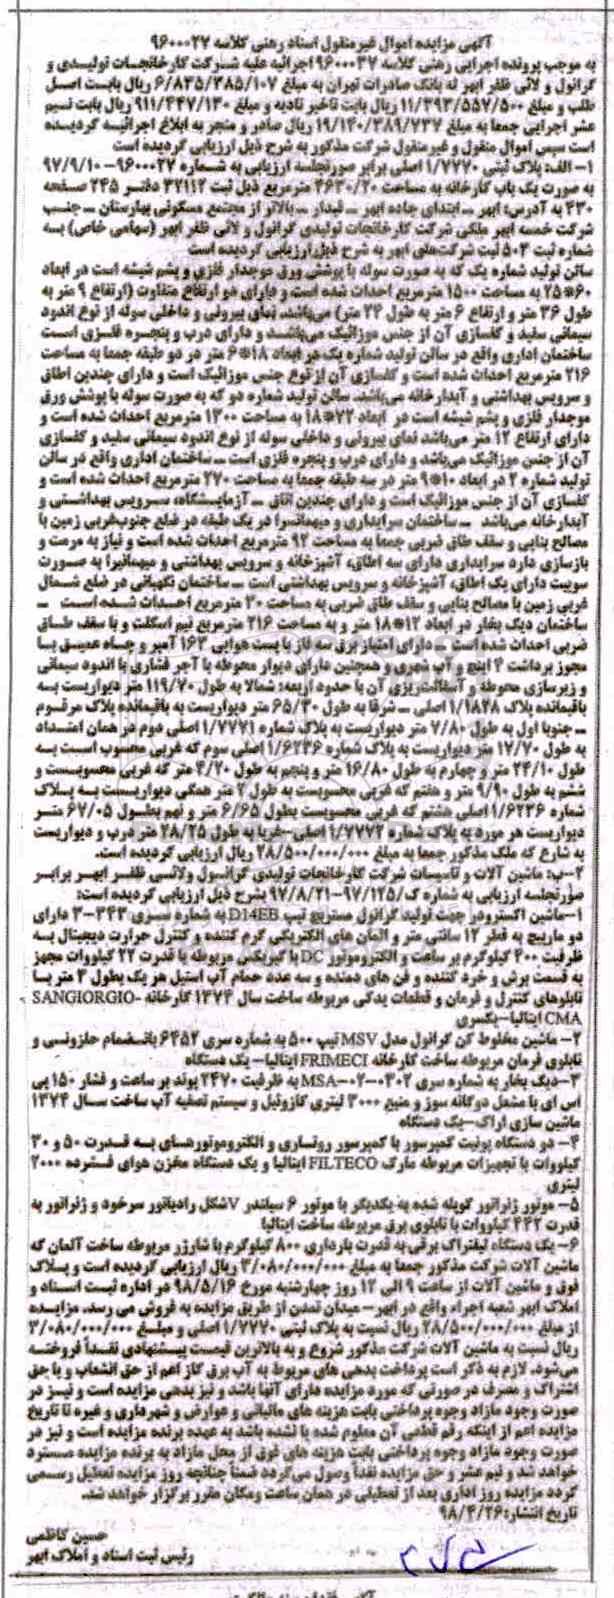 آگهی مزایده اموال غیرمنقول اسناد رهنی کلاسه ۹۶۰۰۰۲۷
به موجب پرونده اجرایی رهنی کلاسه ۹۶۰۰۰۲۷ اجرائیه علیه شرکت کارخانجات تولیدی و
گرانول و لاتی ظفر ابهر له بانک صادرات تهران به مبلغ ۶/۸۳۵/۳۸۵/۱۰۷ ریال بابت اصل
طلب و مبلغ ۱۱/۳۹۳/۵۵۷/۵۰۰ ریال بابت تاخیر تادیه و مبلغ ۹۱۱/۴۴۷/۱۳۰ ریال بابت نیم
عشر اجرایی جمعا به مبلغ ۱۹/۱۴۰/۳۸۹/۷۳۷ ریال صادر و منجر به ابلاغ اجرائیه گردیده
است سپس اموال منقول و غیرمنقول شرکت مذکور به شرح ذیل ارزیابی گردیده است
۱- الف: پلاک ثبتی ۱/۷۷۷۰ اصلی برابر صورتجلسه ارزیابی به شماره ۹۶۰۰۰۲۷-۹۷/۹/۱۰
به صورت یک باب کارخانه به مساحت ۴۶۳۰/۲۰ مترمربع ذیل ثبت ۳۲۱۱۲ دفتر ۲۴۵ صفحه
۴۳۰ به آدرس: ابهر ـ ابتدای جاده ابهر ـ قیدار ـ بالاتر از مجتمع مسکونی بهارستان ـ جنب
شرکت خمسه ابهر ملکی شرکت کارخانجات تولیدی گرانول و لاتی ظفر ابهر (سهامی خاص) به
شماره ثبت ۵۰۴ ثبت شرکت‌های ابهر به شرح ذیل ارزیابی گردیده است
سالن تولید شماره یک که به صورت سوله با پوشش ورق موجدار فلزی و پشم شیشه است در ابعاد
۶۰*۲۵ به مساحت ۱۵۰۰ مترمربع احداث شده است و دارای دو ارتفاع متفاوت (ارتفاع ۹ متر به
طول ۳۶ متر و ارتفاع ۶ متر به طول ۲۴ متر) می‌باشد. نمای بیرونی و داخلی سوله از نوع اندود
سیمانی سفید و کفسازی آن از جنس موزائیک می‌باشد و دارای درب و پنجره فلزی است
ساختمان اداری واقع در سالن تولید شماره یک در ابعاد ۱۸*۶ متر در دو طبقه جمعا به مساحت
۲۱۶ مترمربع احداث شده است و کفسازی آن از نوع جنس موزائیک است و دارای چندین اطاق
و سرویس بهداشتی و آبدارخانه می‌باشد. سالن تولید شماره دو که به صورت سوله با پوشش ورق
موجدار فلزی و پشم شیشه است در ابعاد ۷۲*۱۸ به مساحت ۱۳۰۰ مترمربع احداث شده است و
دارای ارتفاع ۱۲ متر می‌باشد نمای بیرونی و داخلی سوله از نوع اندود سیمانی سفید و کفسازی
آن از جنس موزائیک می‌باشد و دارای درب و پنجره فلزی است ـ ساختمان اداری واقع در سالن
تولید شماره ۲ در ابعاد ۱۰*۹ متر در سه طبقه جمعا به مساحت ۲۷۰ مترمربع احداث شده است و
کفسازی آن از جنس موزائیک است و دارای چندین اتاق ـ آزمایشگاه، سرویس بهداشتی و
آبدارخانه می‌باشد ـ ساختمان سرایداری و میهمانسرا در یک طبقه در ضلع جنوب‌غربی زمین با
مصالح بنایی و سقف طاق ضربی جمعا به مساحت ۹۲ مترمربع احداث شده است و نیاز به مرمت و
بازسازی دارد سرایداری دارای سه اطاق، آشپزخانه و سرویس بهداشتی و میهمانسرا به صورت
سوییت دارای یک اطاق، آشپزخانه و سرویس بهداشتی است ـ ساختمان نگهبانی در ضلع شمال
غربی زمین با مصالح بنایی و سقف طاق ضربی به مساحت ۲۰ مترمربع احداث شده است ـ
ساختمان دیگ بخار در ابعاد ۱۲*۱۸ متر و به مساحت ۲۱۶ مترمربع نیم اسکلت و با سقف طاق
ضربی احداث شده است ـ دارای امتیاز برق سه فاز با پست هوایی ۱۶۲ آمپر و چاه عمیق با
مجوز برداشت ۴ اینچ و آب شهری و همچنین دارای دیوار محوطه با آجر فشاری با اندود سیمانی
و زیرسازی محوطه و آسفالت‌ریزی آن با حدود اربعه: شمالا به طول ۱۱۹/۷۰ متر دیواریست به
باقیمانده پلاک ۱/۱۸۴۸ اصلی ـ شرقا به طول ۶۵/۳۰ متر دیواریست به باقیمانده پلاک مرقوم
ـ جنوبا اول به طول ۷/۸۰ متر دیواریست به پلاک شماره ۱/۷۷۷۱ اصلی دوم در همان امتداد
به طول ۱۷/۷۰ متر دیواریست به پلاک شماره ۱/۶۲۳۶ اصلی سوم که غربی محسوب است به
طول ۲۴/۱۰ متر و چهارم به طول ۱۶/۸۰ متر و پنجم به طول ۴/۲۰ متر که غربی محسوبست و
ششم به طول ۹/۹۰ متر و هفتم که غربی محسوبست به طول ۲ متر همگی دیواریست به پلاک
شماره ۱/۶۲۳۶ اصلی هشتم که غربی محسوبست بطول ۶/۶۵ متر و نهم بطول ۶۷/۰۵ متر
دیواریست هر مورد به پلاک شماره ۱/۷۷۷۲ اصلی-غربا به طول ۲۸/۲۵ متر درب و دیواریست
به شارع که ملک مذکور جمعا به مبلغ ۲۸/۵۰۰/۰۰۰/۰۰۰ ریال ارزیابی گردیده است.
۲-ب: ماشین آلات و تاسیسات شرکت کارخانجات تولیدی گرانول ولاتسی ظفر ابهر برابر
صورتجلسه ارزیابی به شماره ک/۹۷/۱۲۵-۹۷/۸/۲۱ بشرح ذیل ارزیابی گردیده است:
۱-ماشین اکسترودر جهت تولید گرانول مستربچ تیپ D14EB به شماره سری ۳۴۳-۳ دارای
دو مارپیچ به قطر ۱۲ سانتی متر و المان های الکتریکی گرم کننده و کنترل حرارت دیجیتال به
ظرفیت ۴۰۰ کیلوگرم بر ساعت و الکتروموتور DC با گیربکس مربوطه با قدرت ۲۲ کیلووات مجهز
به قسمت برش و خرد کننده و فن های دمنده و سه عدد حمام آب استیل هر یک بطول ۴ متر با
تابلوهای کنترل و فرمان و قطعات یدکی مربوطه ساخت سال ۱۳۷۴ کارخانه SANGIORGIO-
CMA ایتالیا-یکسری
۲- ماشین مخلوط کن گرانول مدل MSV تیپ ۵۰۰ به شماره سری ۶۴۵۲ بانضمام حلزونسی و
تابلوی فرمان مربوطه ساخت کارخانه FRIMECI ایتالیا- یک دستگاه
۳-دیگ بخار به شماره سری ۰۳۰۲-۰۲-MSA به ظرفیت ۲۴۷۰ پوند بر ساعت و فشار ۱۵۰ پی
اس ای با مشعل دوگانه سوز و منبع ۳۰۰۰ لیتری گازوئیل و سیستم تصفیه آب ساخت سال ۱۳۷۴
ماشین سازی اراک-یک دستگاه
۴- دو دستگاه یونیت کمپرسور با کمپرسور روتساری و الکتروموتورهسای به قدرت ۵۰ و ۳۰
کیلووات با تجهیزات مربوطه مارک FILTECO ایتالیا و یک دستگاه مخزن هوای فشرده ۲۰۰۰
لیتری
۵- موتور ژنراتور کوپله شده به یکدیگر با موتور ۶ سیلندر V شکل رادیاتور سرخود و ژنراتور به
قدرت ۴۴۲ کیلووات با تابلوی برق مربوطه ساخت ایتالیا
۶- یک دستگاه لیفتراک برقی به قدرت بارداری ۸۰۰ کیلوگرم با شارژر مربوطه ساخت آلمان که
ماشین آلات شرکت مذکور جمعا به مبلغ ۳/۰۸۰/۰۰۰/۰۰۰ ریال ارزیابی گردیده است و پلاک
فوق و ماشین آلات از ساعت ۹ الی ۱۲ روز چهارشنبه مورخ ۹۸/۵/۱۶ در اداره ثبت اسناد و
املاک ابهر شعبه اجراء واقع در ابهر-میدان تمدن از طریق مزایده به فروش می رسد. مزایده
از مبلغ ۲۸/۵۰۰/۰۰۰/۰۰۰ ریال نسبت به پلاک ثبتی ۱/۷۷۷۰ اصلی و مبلغ ۳/۰۸۰/۰۰۰/۰۰۰
ریال نسبت به ماشین آلات شرکت مذکور شروع و به بالاترین قیمت پیشنهادی نقداً فروخته
می‌شود. لازم به ذکر است پرداخت بدهی های مربوط به آب برق گاز اعم از حق انشعاب و یا حق
اشتراک و مصرف در صورتی که مورد مزایده دارای آنها باشد و نیز بدهی مزایده است و نیز در
صورت وجود مازاد وجوه پرداختی بابت هزینه های مالیاتی و عوارض و شهرداری و غیره تا تاریخ
مزایده اعم از اینکه رقم قطعی آن معلوم شده یا نشده باشد به عهده برنده مزایده است و نیز در
صورت وجود مازاد وجوه پرداختی بابت هزینه های فوق از محل مازاد به برنده مزایده مسترد
خواهد شد و نیم عشر و حق مزایده نقداً وصول می‌گردد ضمناً چنانچه روز مزایده تعطیل رسمی
گردد مزایده روز اداری بعد از تعطیلی در همان ساعت ومکان مقرر برگزار خواهد شد.
تاریخ انتشار: ۹۸/۴/۲۶
حسین کاظمی
رئیس ثبت اسناد و املاک ابهر